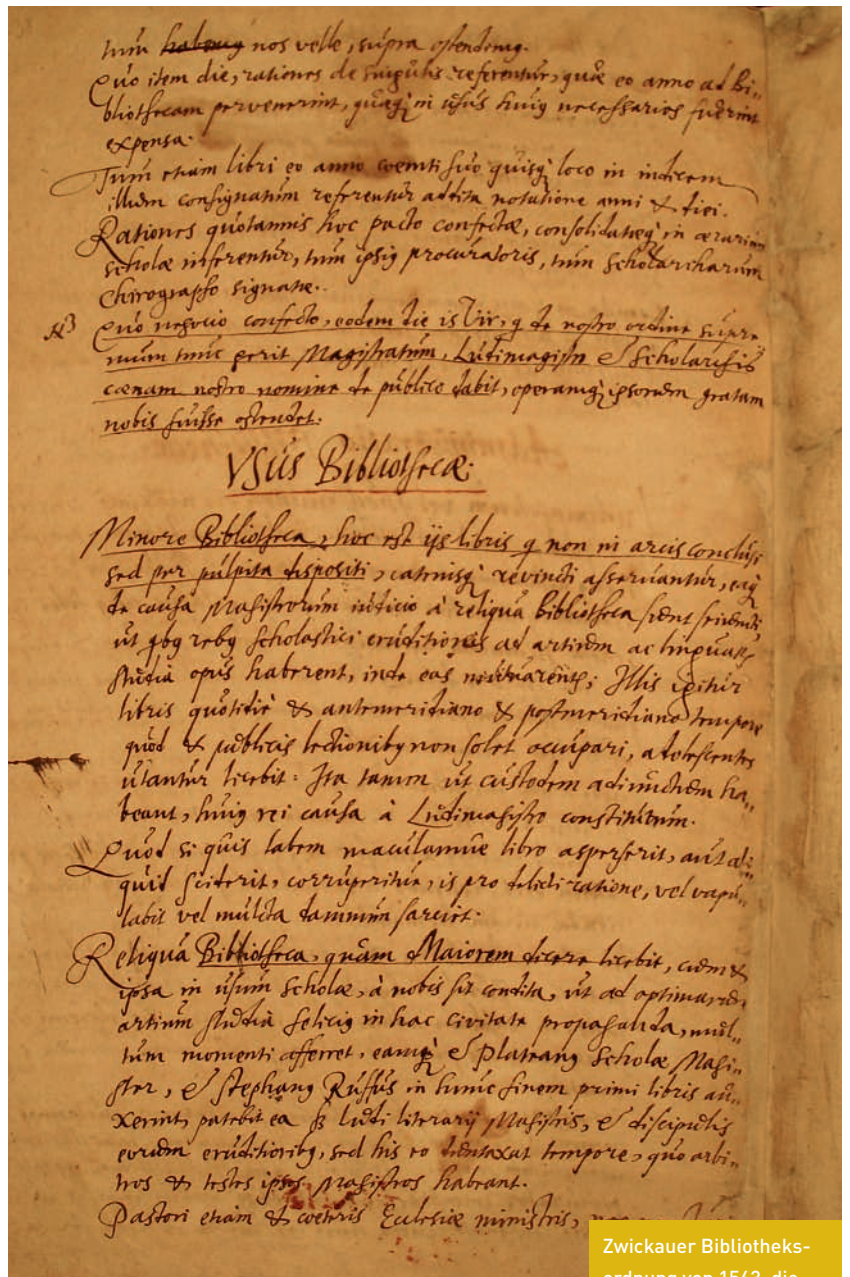 tum habemus nos velle, supra ostendemus.
Quo item die, rationes de singulis referentur, quæ eo anno ad Bi„
bliothecam pervenerint, quæq; in usus huiꝰ necessarios fuerint
expensa.
Tum etiam libri eo anno coemti suo quisq; loco in indicem
illum consignatum referentur addita notatione anni & diei.
Rationes quotannis hoc pacto confectæ, consolidatæq; in ærarium
scholæ inferentur, tum ipsiꝰ procuratoris, tum Scholarcharum
Chirographo signatæ.
Quo negocio confecto, eodem die is Vir, q de nostro ordine supre
mum tunc gerit Magistratum, Ludimagistro & Scholarchis
cœnam nostro nomine de publico dabit, operamq; ipsorum gratam
nobis fuisse ostendet.
VSUS Bibliothecæ.
Minore Bibliotheca, hoc est ijs libris q non in arcis conclusi
sed per pulpita dispositi, catenisq; revincti asservantur, eaq
de causa Magistrorum iudicio à reliqua bibliotheca sunt
ut qbꝰ rebꝰ scholastici eruditiones ad artium ac linguarum
studia opus haberent, inde eas; Illis igitur
libris quotidie & antemeridiano & postmeridiano tempore
quod & publicis lectionibꝰ non solet occupari, adolescentes
utantur licebit: Ita tamen ut custodem adiunctum ha„
beant, huiꝰ rei causa à Ludimagistro constitutum.
Quod si quis labem maculamve libro asperserit, aut ali„
quid sciderit, corruperitve, is pro delicti ratione, vel vapu„
labit vel mulcta damnum sarciet.
Reliqua Bibliotheca, quam Maiorem dicere licebit, cum &
ipsa in usum Scholæ, à nobis sit condita, ut ad optimarum
artium studia feliciꝰ in hac civitate propaganda, mul„
tum momenti afferret, eamq; & Plateanꝰ Scholæ Magi„
ster, & Stephanꝰ Rufus in hunc finem primi libris au„
xerint, patebit ea Ludi literarij Magistris, & discipulis
eorum eruditioribꝰ, sed his eo duntaxat tempore, quo arbi„
tros & testes ipsos Magistros habeant.
Pastori etiam & cœteris Ecclesiæ ministris,
Zwickauer Bibliotheks-
ordnung von 1542, die